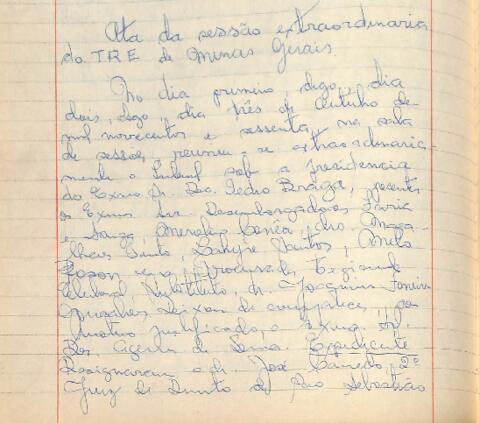 Ata da sessão extraordinaria
do TRE de Minas Gerais.
No dia primeiro, digo, dia
dois, digo, dia três de Outubro de
mil novecentos e sessenta, na sala
de sessões, reuniu-se extraordinaria-
mente o Tribunal sob a presidencia
do Exmo. Sr. Des. Pedro Braga, presentes
os Exmos. Srs. Desembargadores Faria
e Souza, Corrêa, drs. Maga-
lhaes Pinto, Santos, Melo
e o Procurador Regional
Eleitoral, substituto, dr. Joaquim Ferreira
Gonçalves, deixou de comparecer, por
motivo justificado, o Exmo. Sr.
Des. de Sena Expediente
Designaram o dr. José 2º
Juiz de Direito de São Sebastião